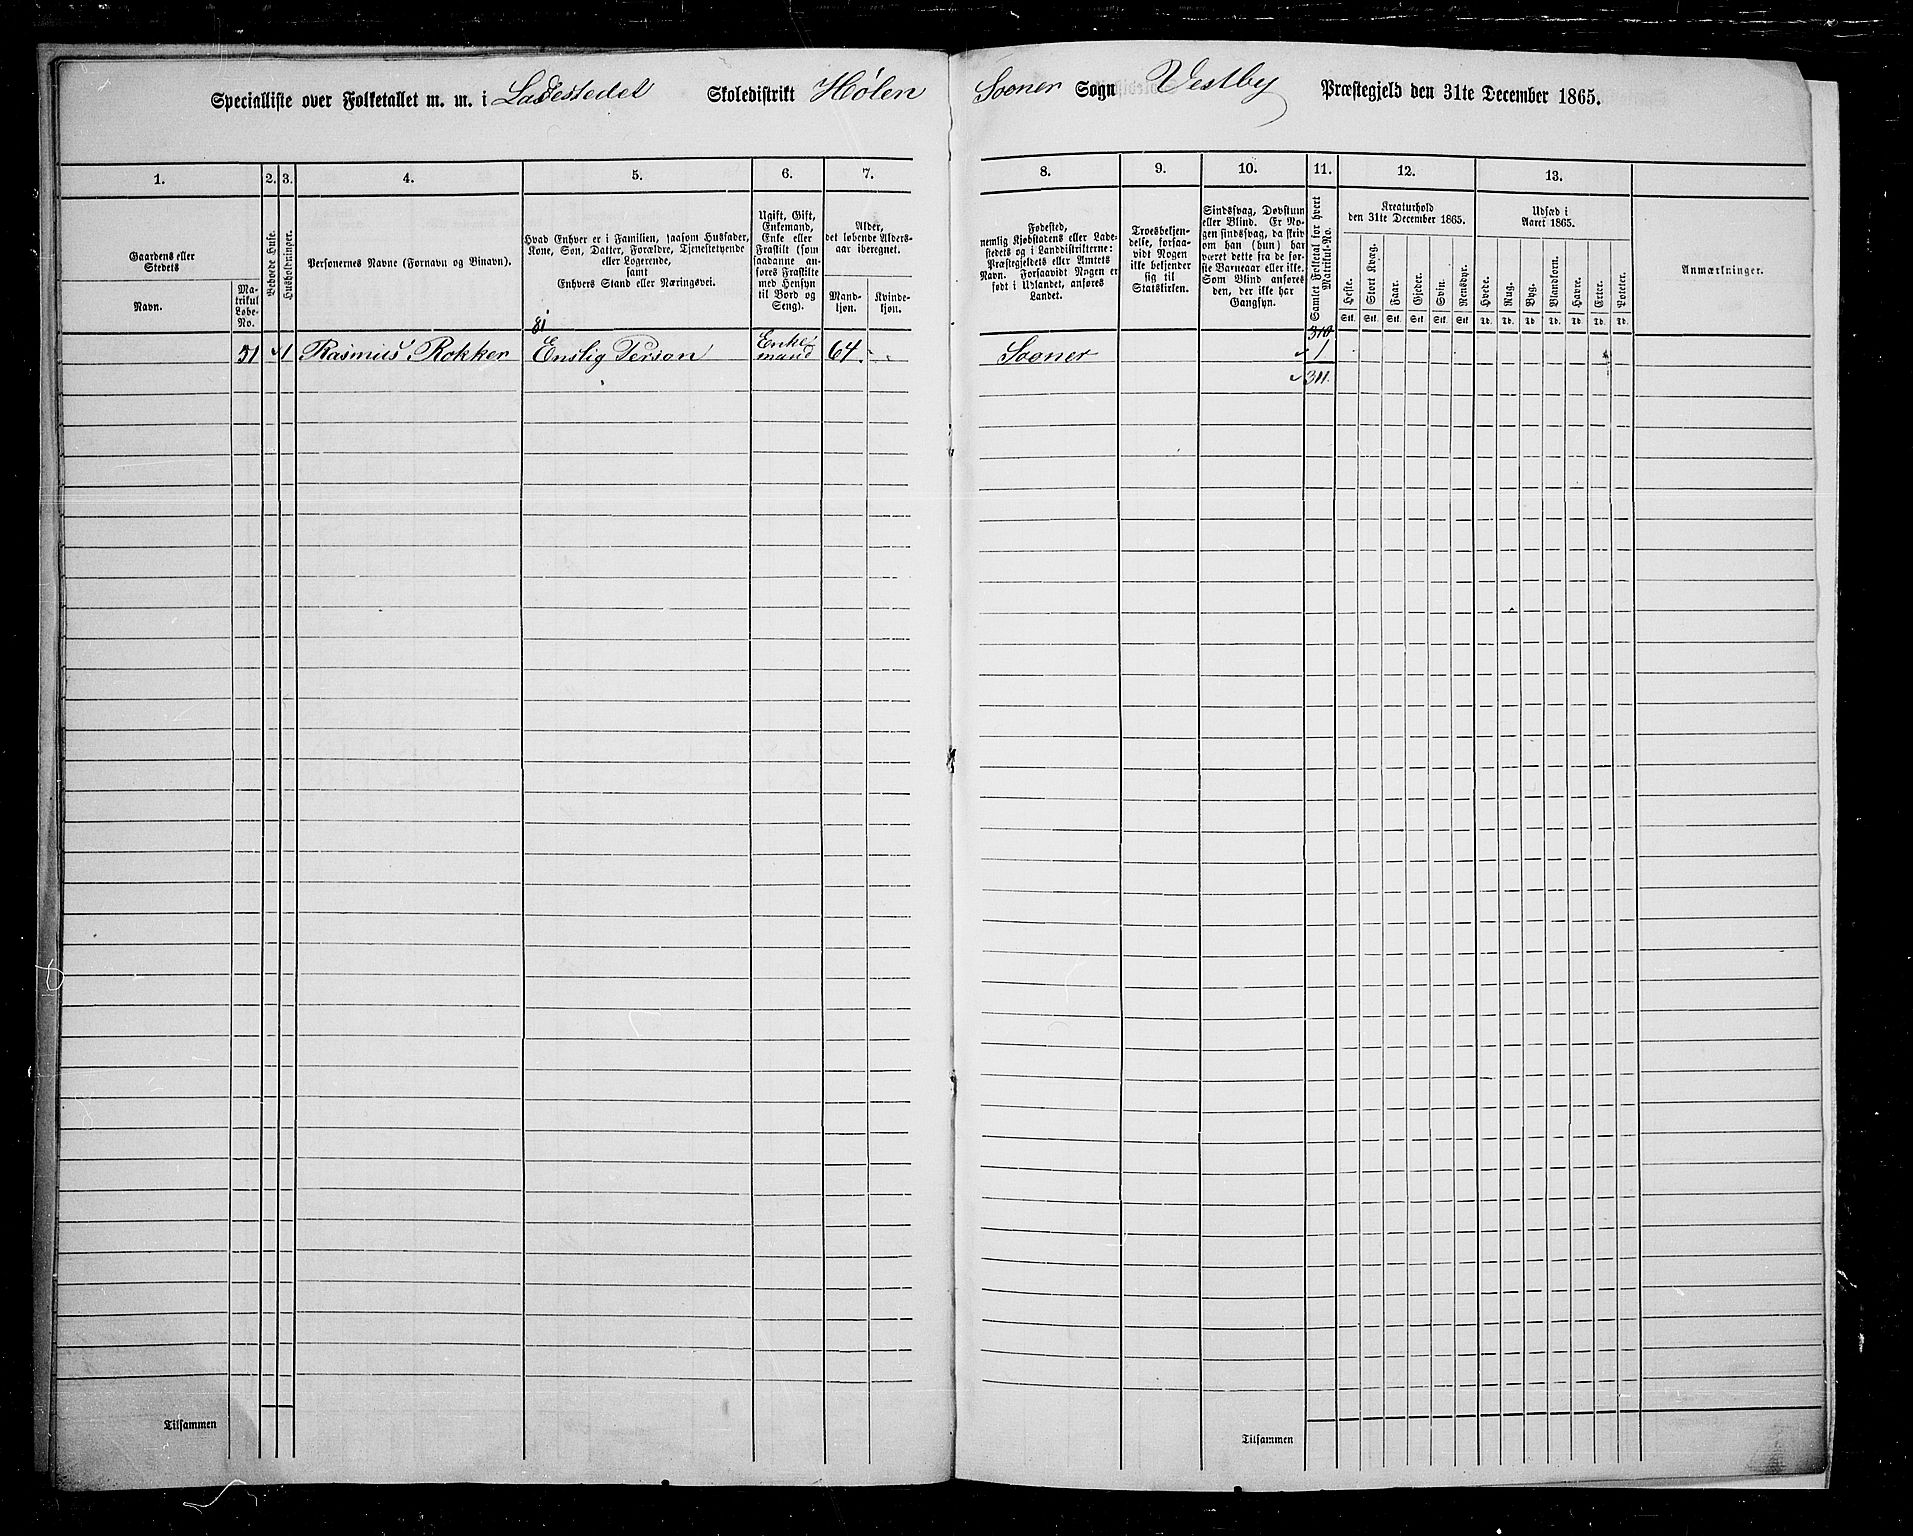 Specialliste over Folketallet m. m. i Ladestedet Skoledistrikt Hølen Sooner Sogn Vestby Præstegjeld den 31te December 1865.
1. 2. 3. 4. 5. 6. 7. 8. 9. 10. 11. 12. 13.
Gaardens eller
Stedets
Navn.
Ma-
trikul
Løbe-
No.
Beboede Huse.
Husholdninger.
Personernes Navne (Fornavn og Binavn).
Hvad Enhver er i Familien, saasom Husfader,
Kone, Søn, Datter, Forældre, Tjenestetyende
eller Logerende,
samt
Enhvers Stand eller Næringsvei.
Ugift, Gift,
Enkemand,
Enke eller
Fraskilt (som
saadanne an-
føres Fraskilte
med Hensyn
til Bord og
Seng).
Alder,
det løbende Alders-
aar iberegnet.
Mand-
kjøn.
Kvinde-
kjøn.
Fødested,
nemlig Kjøbstadens eller Lade-
stedets og i Landdistrikterne:
Præstegjeldets eller Amtets
Navn. Forsaavidt Nogen er
født i Udlandet, anføres
Landet.
Troesbekjen-
delse, forsaa-
vidt Nogen
ikke bekjender
sig til
Statskirken.
Sindssvag, Døvstum
eller Blind. Er No-
gen sindssvag, da skriv
om han (hun) har
været dette fra de før-
ste Barneaar eller ikke.
Som Blind anføres
den, der ikke har
Gangsyn.
Samlet Folketal for hvert
Matrikul-No.
Kreaturhold
den 31te December 1865.
Heste. Stort Kvæg. Faar. Gjeder. Svin. Rensdyr.
Stk. Stk. Stk. Stk. Stk. Stk.
Udsæd i
Aaret 1865.
Hvede. Rug. Byg. Blandkorn. Havre. Erter. Poteter.
Td. Td. Td. Td. Td. Td. Td.
Anmærkninger.
81 310
51 1 Rasmus Rokker Enslig Person Enke-
mand 64 Sooner 1
311.
Tilsammen
Tilsammen